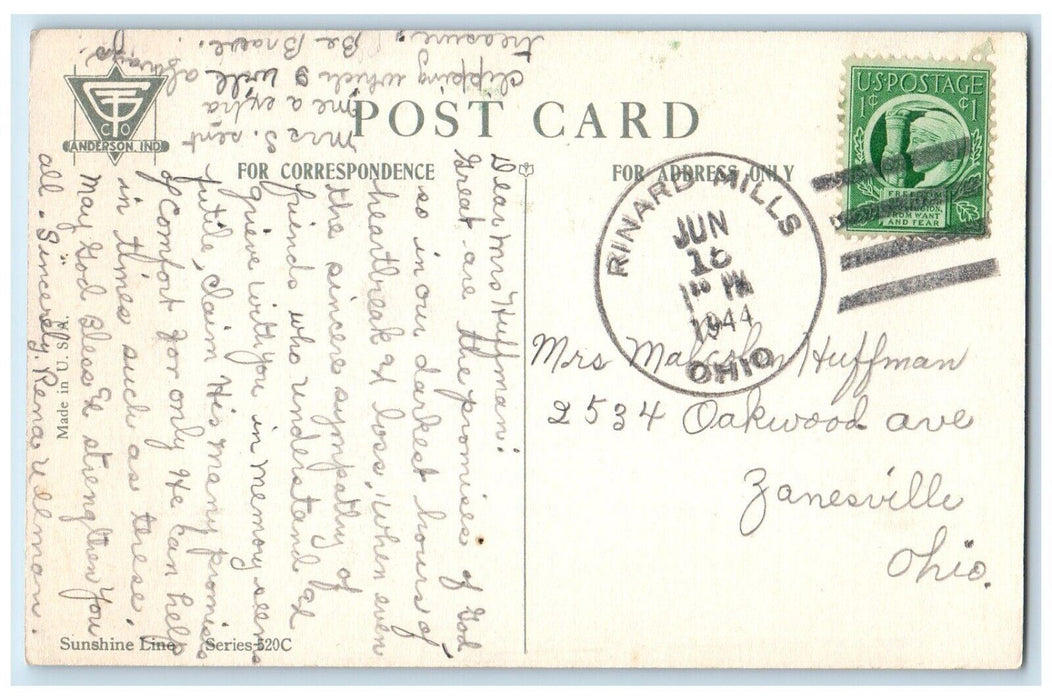 GTS
CO
ANDERSON, IND.
POST CARD
FOR CORRESPONDENCE
FOR ADDRESS ONLY
U.S. POSTAGE
1¢ ¢1
FREEDOM
FROM WANT
AND FEAR
RINARD MILLS
JUN
16
1 PM
1944
OHIO
Mrs Huffman
2534 Oakwood ave
Zanesville
Ohio.
Dear Mrs Huffman:
Great are the promises of God
so in our darkest hours of
heartbreak & loss, when even
the sincere sympathy of
friends who understand &
grieve with you in memory seems
futile, claim His many promises
of Comfort for only He can help
in times such as these.
May God Bless & strengthen you
all. Sincerely, Rena
Mrs S. sent
me a extra
clipping which I will always
treasure. Be Brave.
Made in U.S.A.
Sunshine Line Series 520C